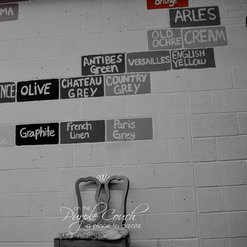 Orange
MA
ARLES
OLD OCHRE CREAM
ANTIBES Green VERSAILLES ENGLISH YELLOW
NCE OLIVE CHATEAU GREY COUNTRY GREY
Graphite French Linen Paris Grey
on the
Purple Couch
a place to create